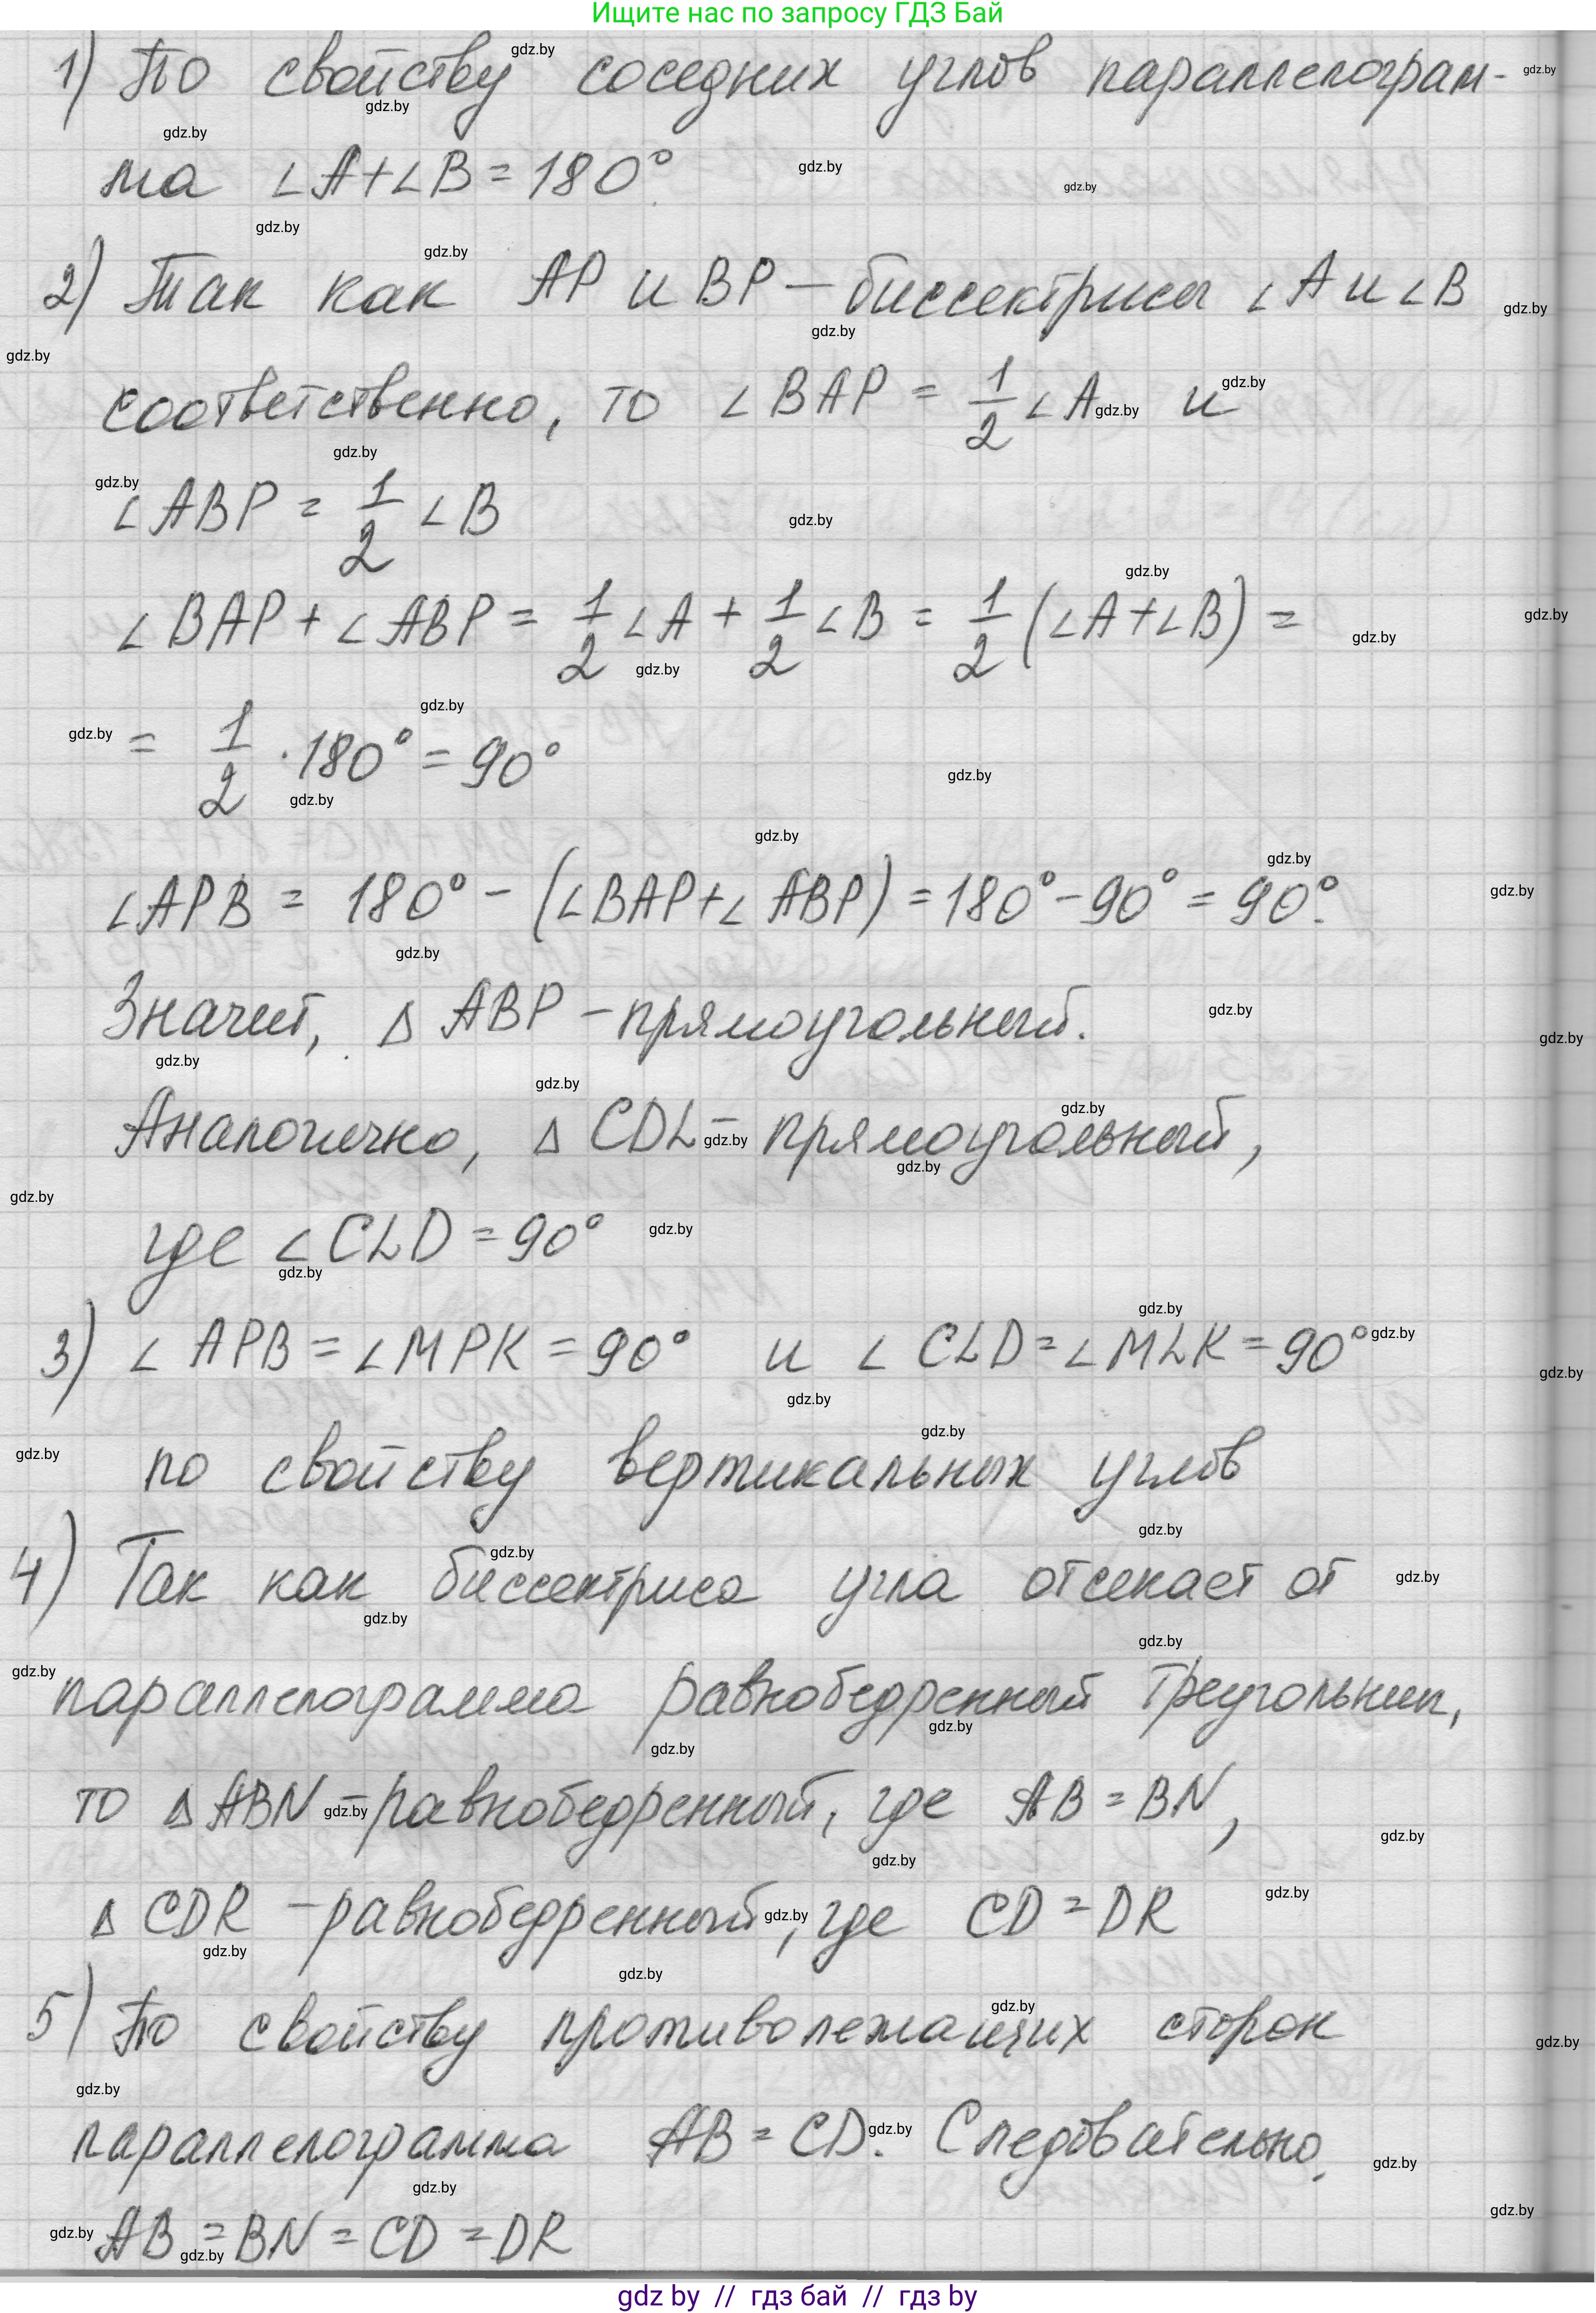 Ищите нас по запросу ГДЗ Бай
1) По свойству соседних углов параллелограм-
ма ∠A+∠B=180°
2) Так как AP и BP – биссектрисы ∠A и ∠B
соответственно, то ∠BAP = 1/2 ∠A и
∠ABP = 1/2 ∠B
∠BAP + ∠ABP = 1/2 ∠A + 1/2 ∠B = 1/2 (∠A+∠B) =
= 1/2 · 180° = 90°
∠APB = 180° - (∠BAP+∠ABP) = 180° - 90° = 90°.
Значит, Δ ABP – прямоугольный.
Аналогично, Δ CDL – прямоугольный,
где ∠CLD = 90°
3) ∠APB = ∠MPK = 90° и ∠CLD = ∠MLK = 90°
по свойству вертикальных углов
4) Так как биссектриса угла отсекает от
параллелограмма равнобедренный треугольник,
то Δ ABN – равнобедренный, где AB = BN,
Δ CDR – равнобедренный, где CD = DR
5) По свойству противолежащих сторон
параллелограмма AB = CD. Следовательно,
AB = BN = CD = DR
gdz by // гдз бай // гдз by